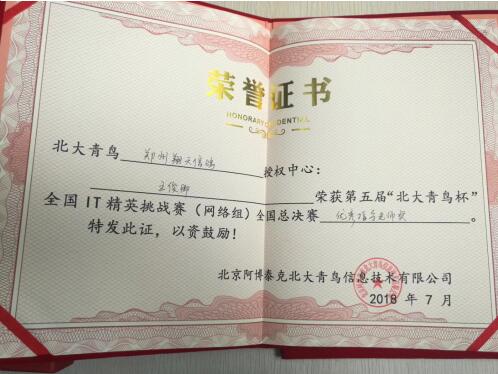 荣誉证书
HONORARY CREDENTIAL
北大青鸟 郑州翔天信鸽 授权中心:
王俊卿 荣获第五届“北大青鸟杯”
全国IT精英挑战赛(网络组)全国总决赛 优秀指导老师奖
特发此证,以资鼓励!
北京阿博泰克北大青鸟信息技术有限公司
2018年7月